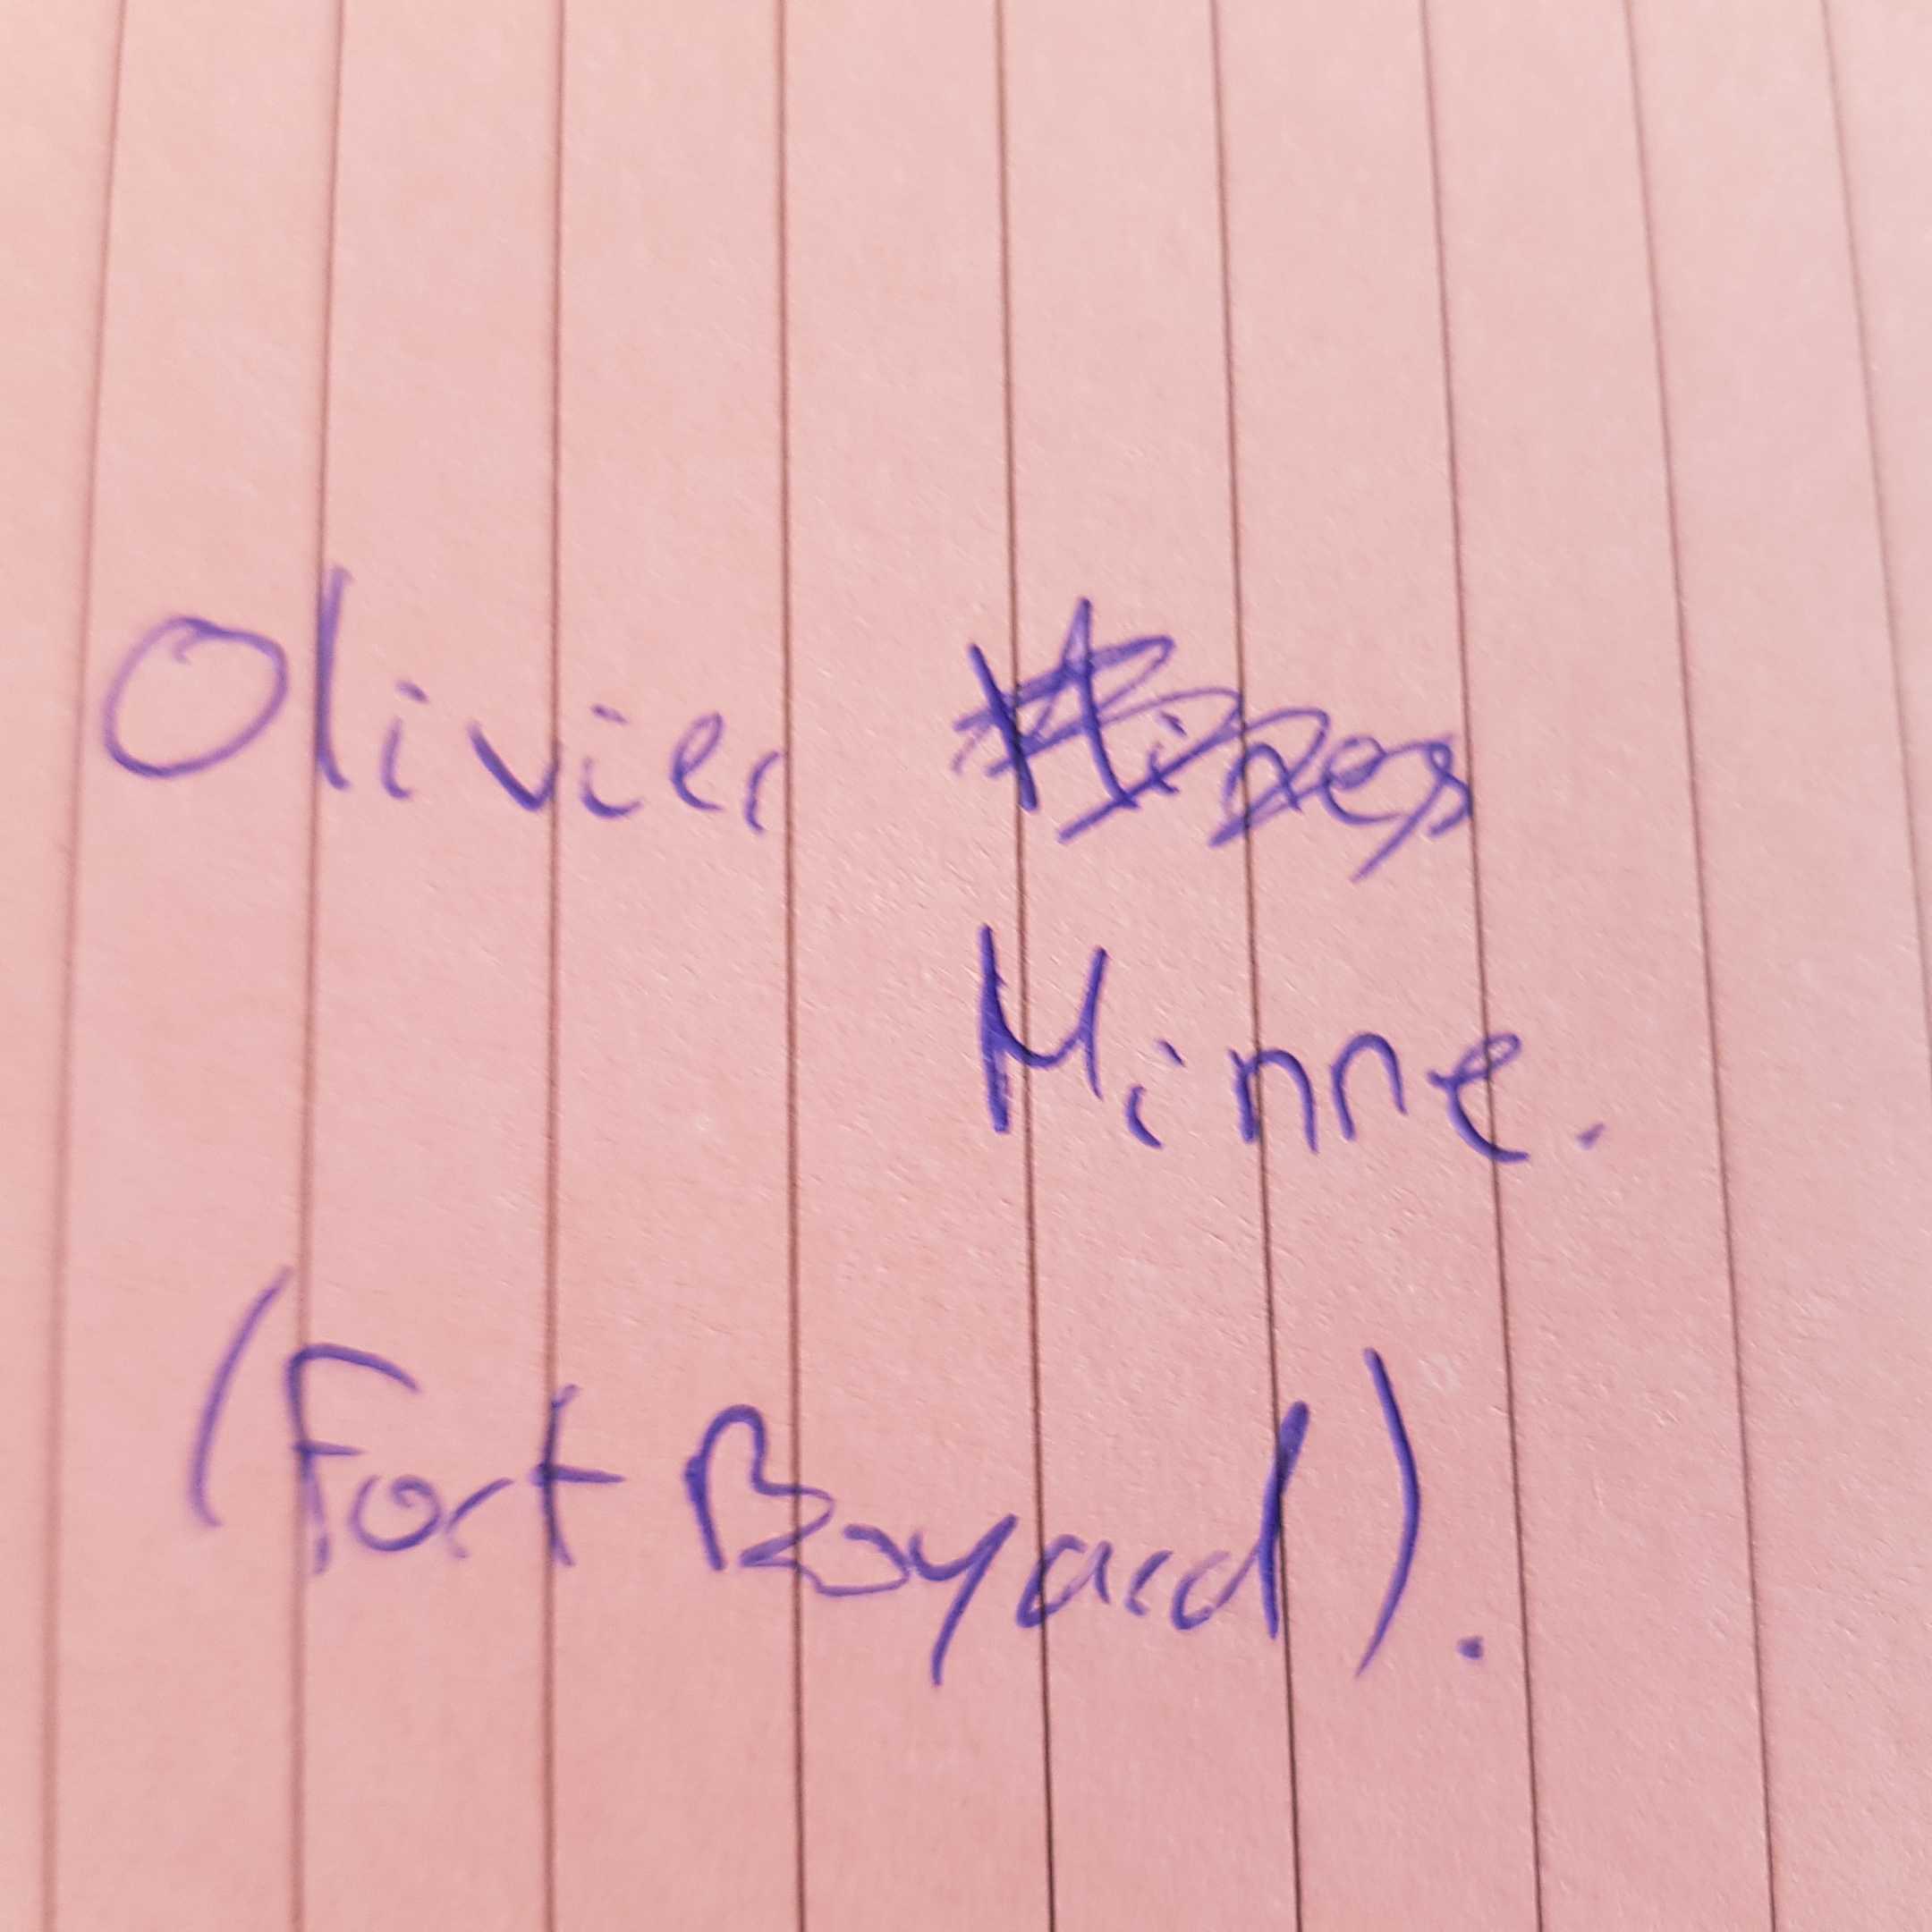 Olivier
Minne.
(Fort Boyard).